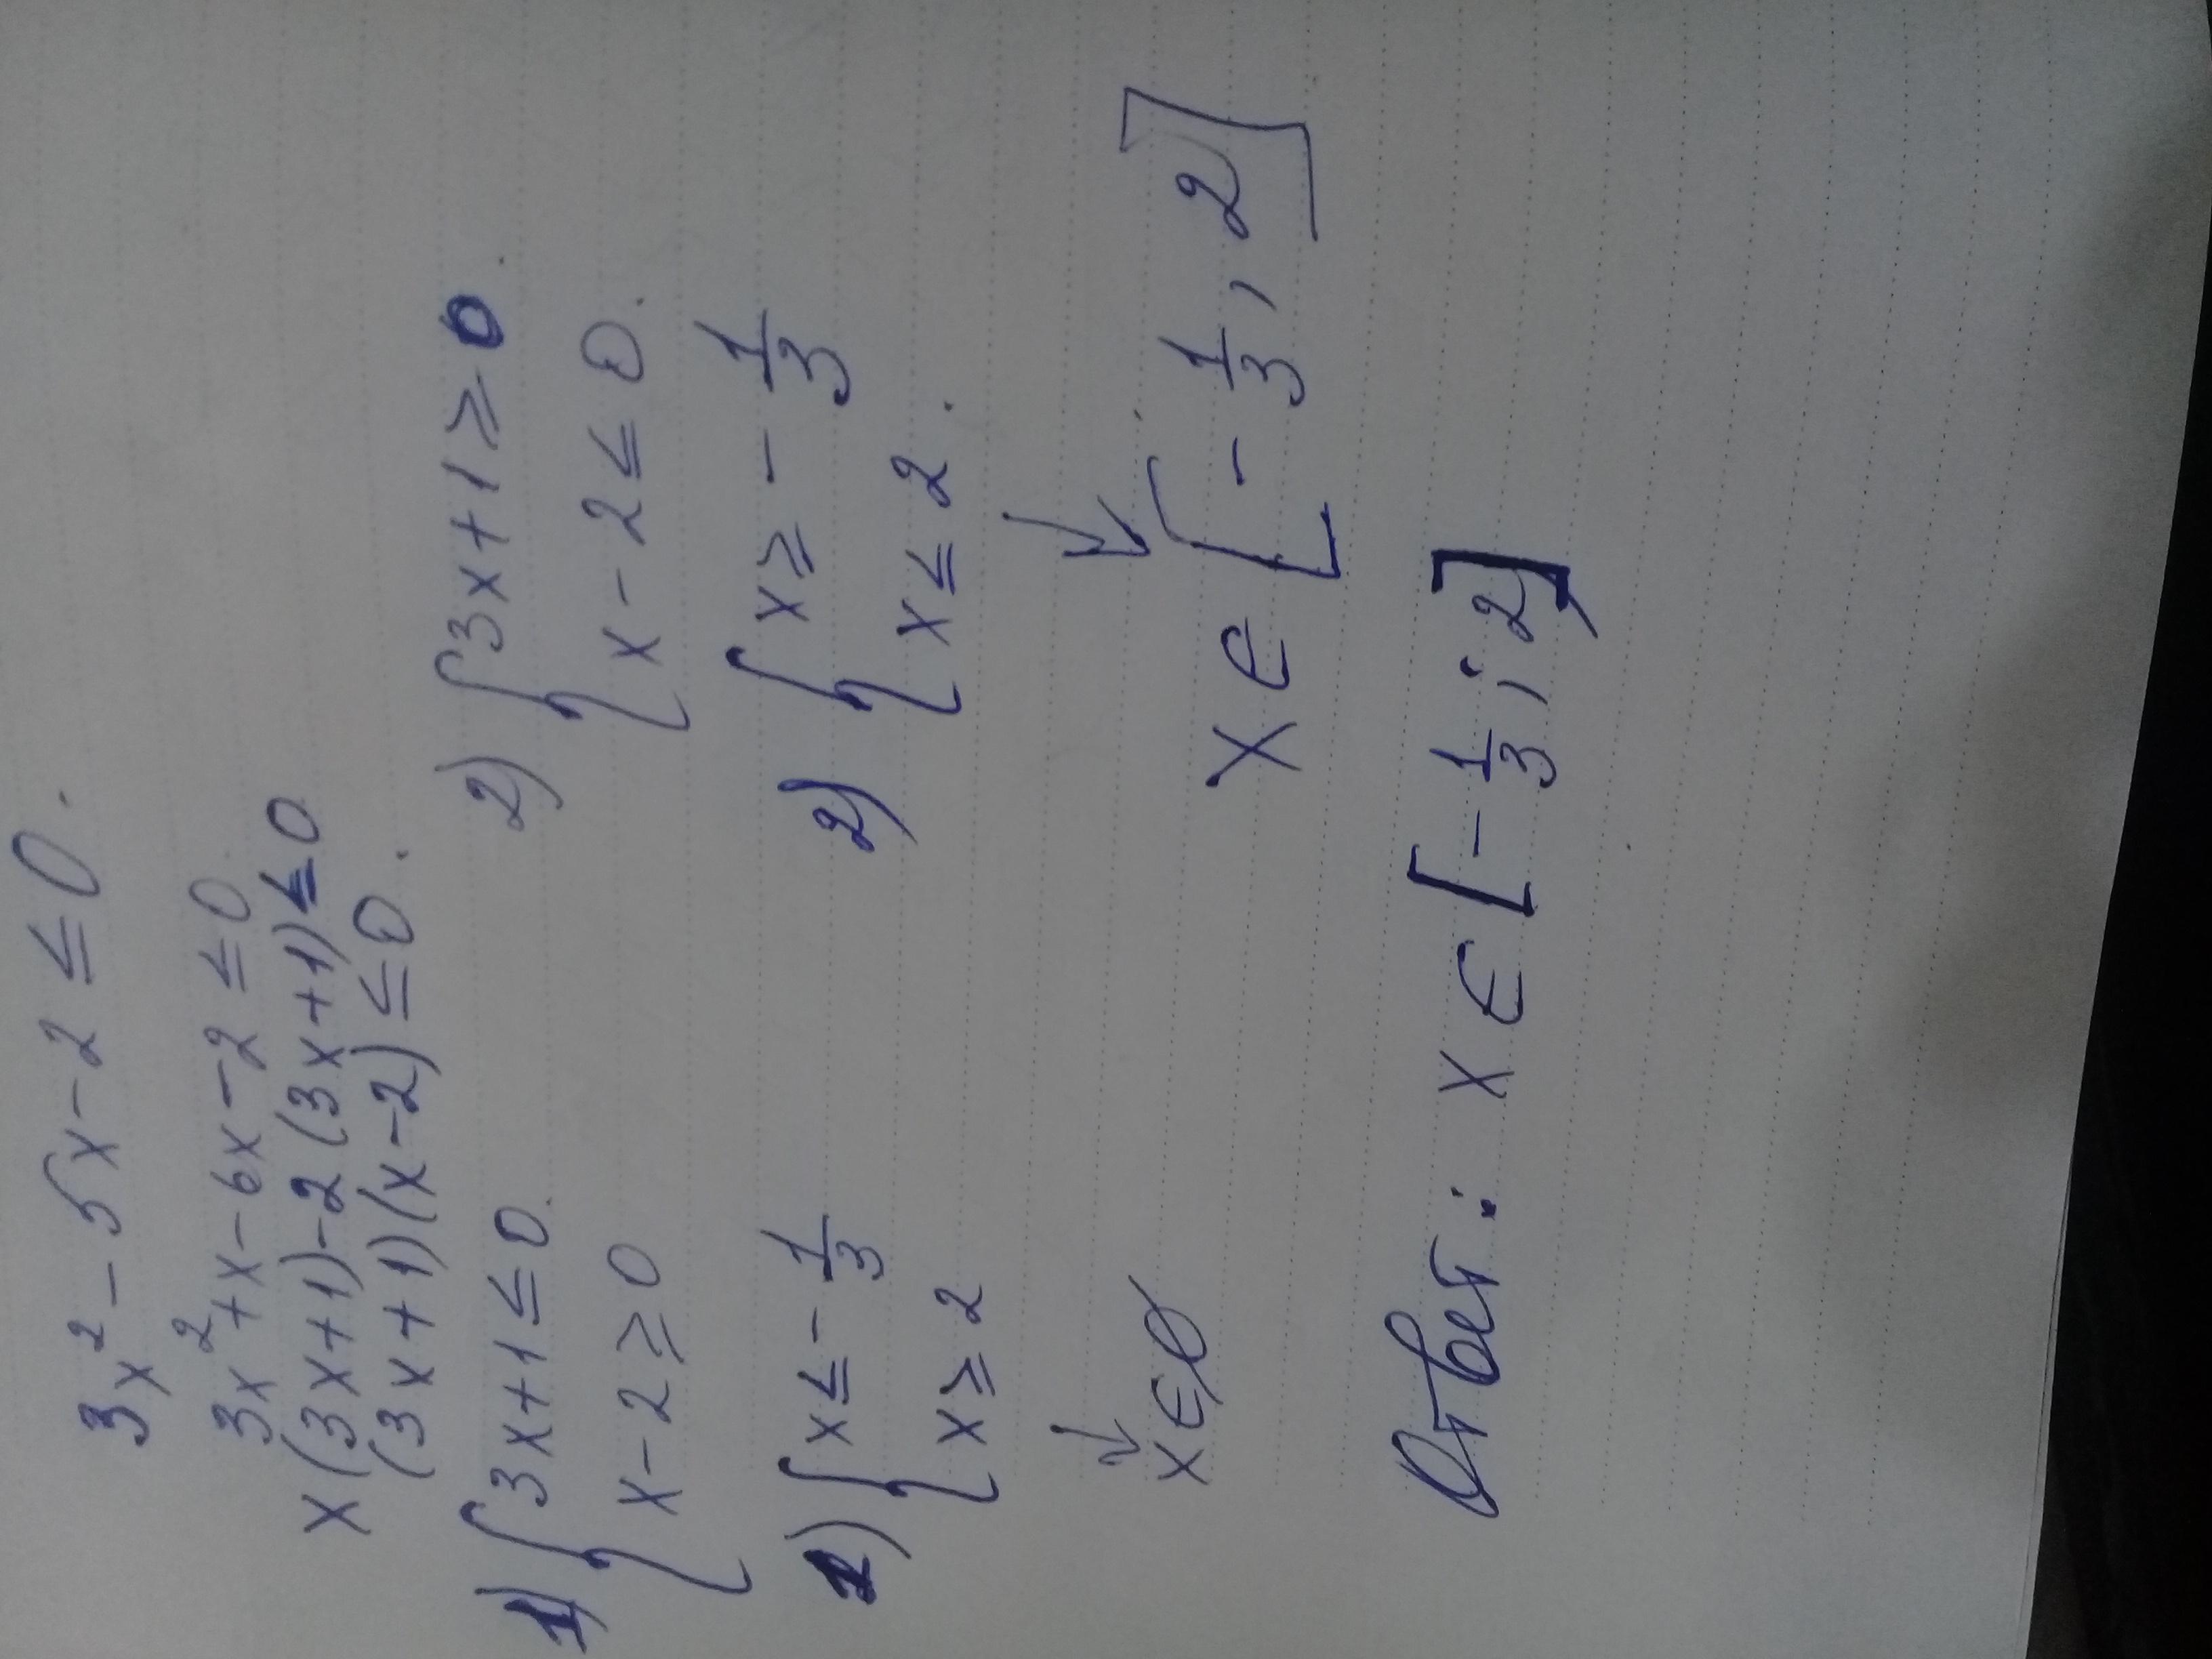 3x² - 5x - 2 ≤ 0.
3x² + x - 6x - 2 ≤ 0
x(3x+1) - 2(3x+1) ≤ 0
(3x+1)(x-2) ≤ 0.
1) { 3x+1 ≤ 0
x - 2 ≥ 0
2) { 3x+1 ≥ 0.
x - 2 ≤ 0.
1) { x ≤ - 1/3
x ≥ 2
2) { x ≥ - 1/3
x ≤ 2.
↓
x ∈ ∅
↓
x ∈ [- 1/3, 2]
Ответ: x ∈ [- 1/3; 2]